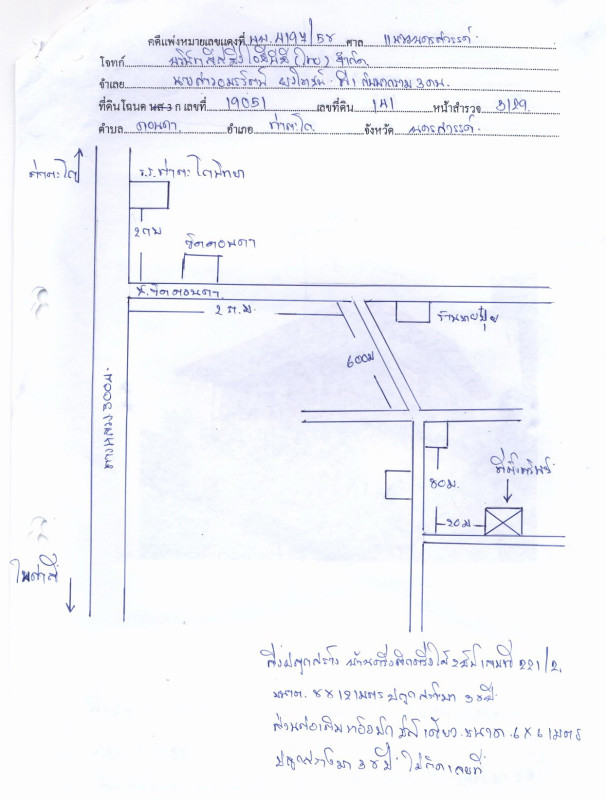 คดีแพ่งหมายเลขแดงที่ ผบ. 4197/54 ศาล แขวงนครสวรรค์
โจทก์ (ไทย) จำกัด
จำเลย นางสาว ที่ 1 กับพวกรวม 3 คน
ที่ดินโฉนด นส-3 ก เลขที่ 19051 เลขที่ดิน 141 หน้าสำรวจ
ตำบล ดอนคา อำเภอ ท่าตะโก จังหวัด นครสวรรค์
ท่าตะโก
ร.ร.ท่าตะโกพิทยา
2 กม
วัดดอนคา
ซ.วัดดอนคา
2 ก.ม.
ร้านขายปุ๋ย
600ม
ทางหลวง
80ม.
ที่ตั้งทรัพย์
20ม
ไพศาลี
สิ่งปลูกสร้าง บ้านครึ่งตึกครึ่งไม้ 2 ชั้น เลขที่ 221/2
ขนาด 8x12 เมตร ปลูกสร้างมา
ส่วนต่อเติม ชั้นเดียว ขนาด 6x6 เมตร
ปลูกสร้างมา ไม่ติดเลขที่